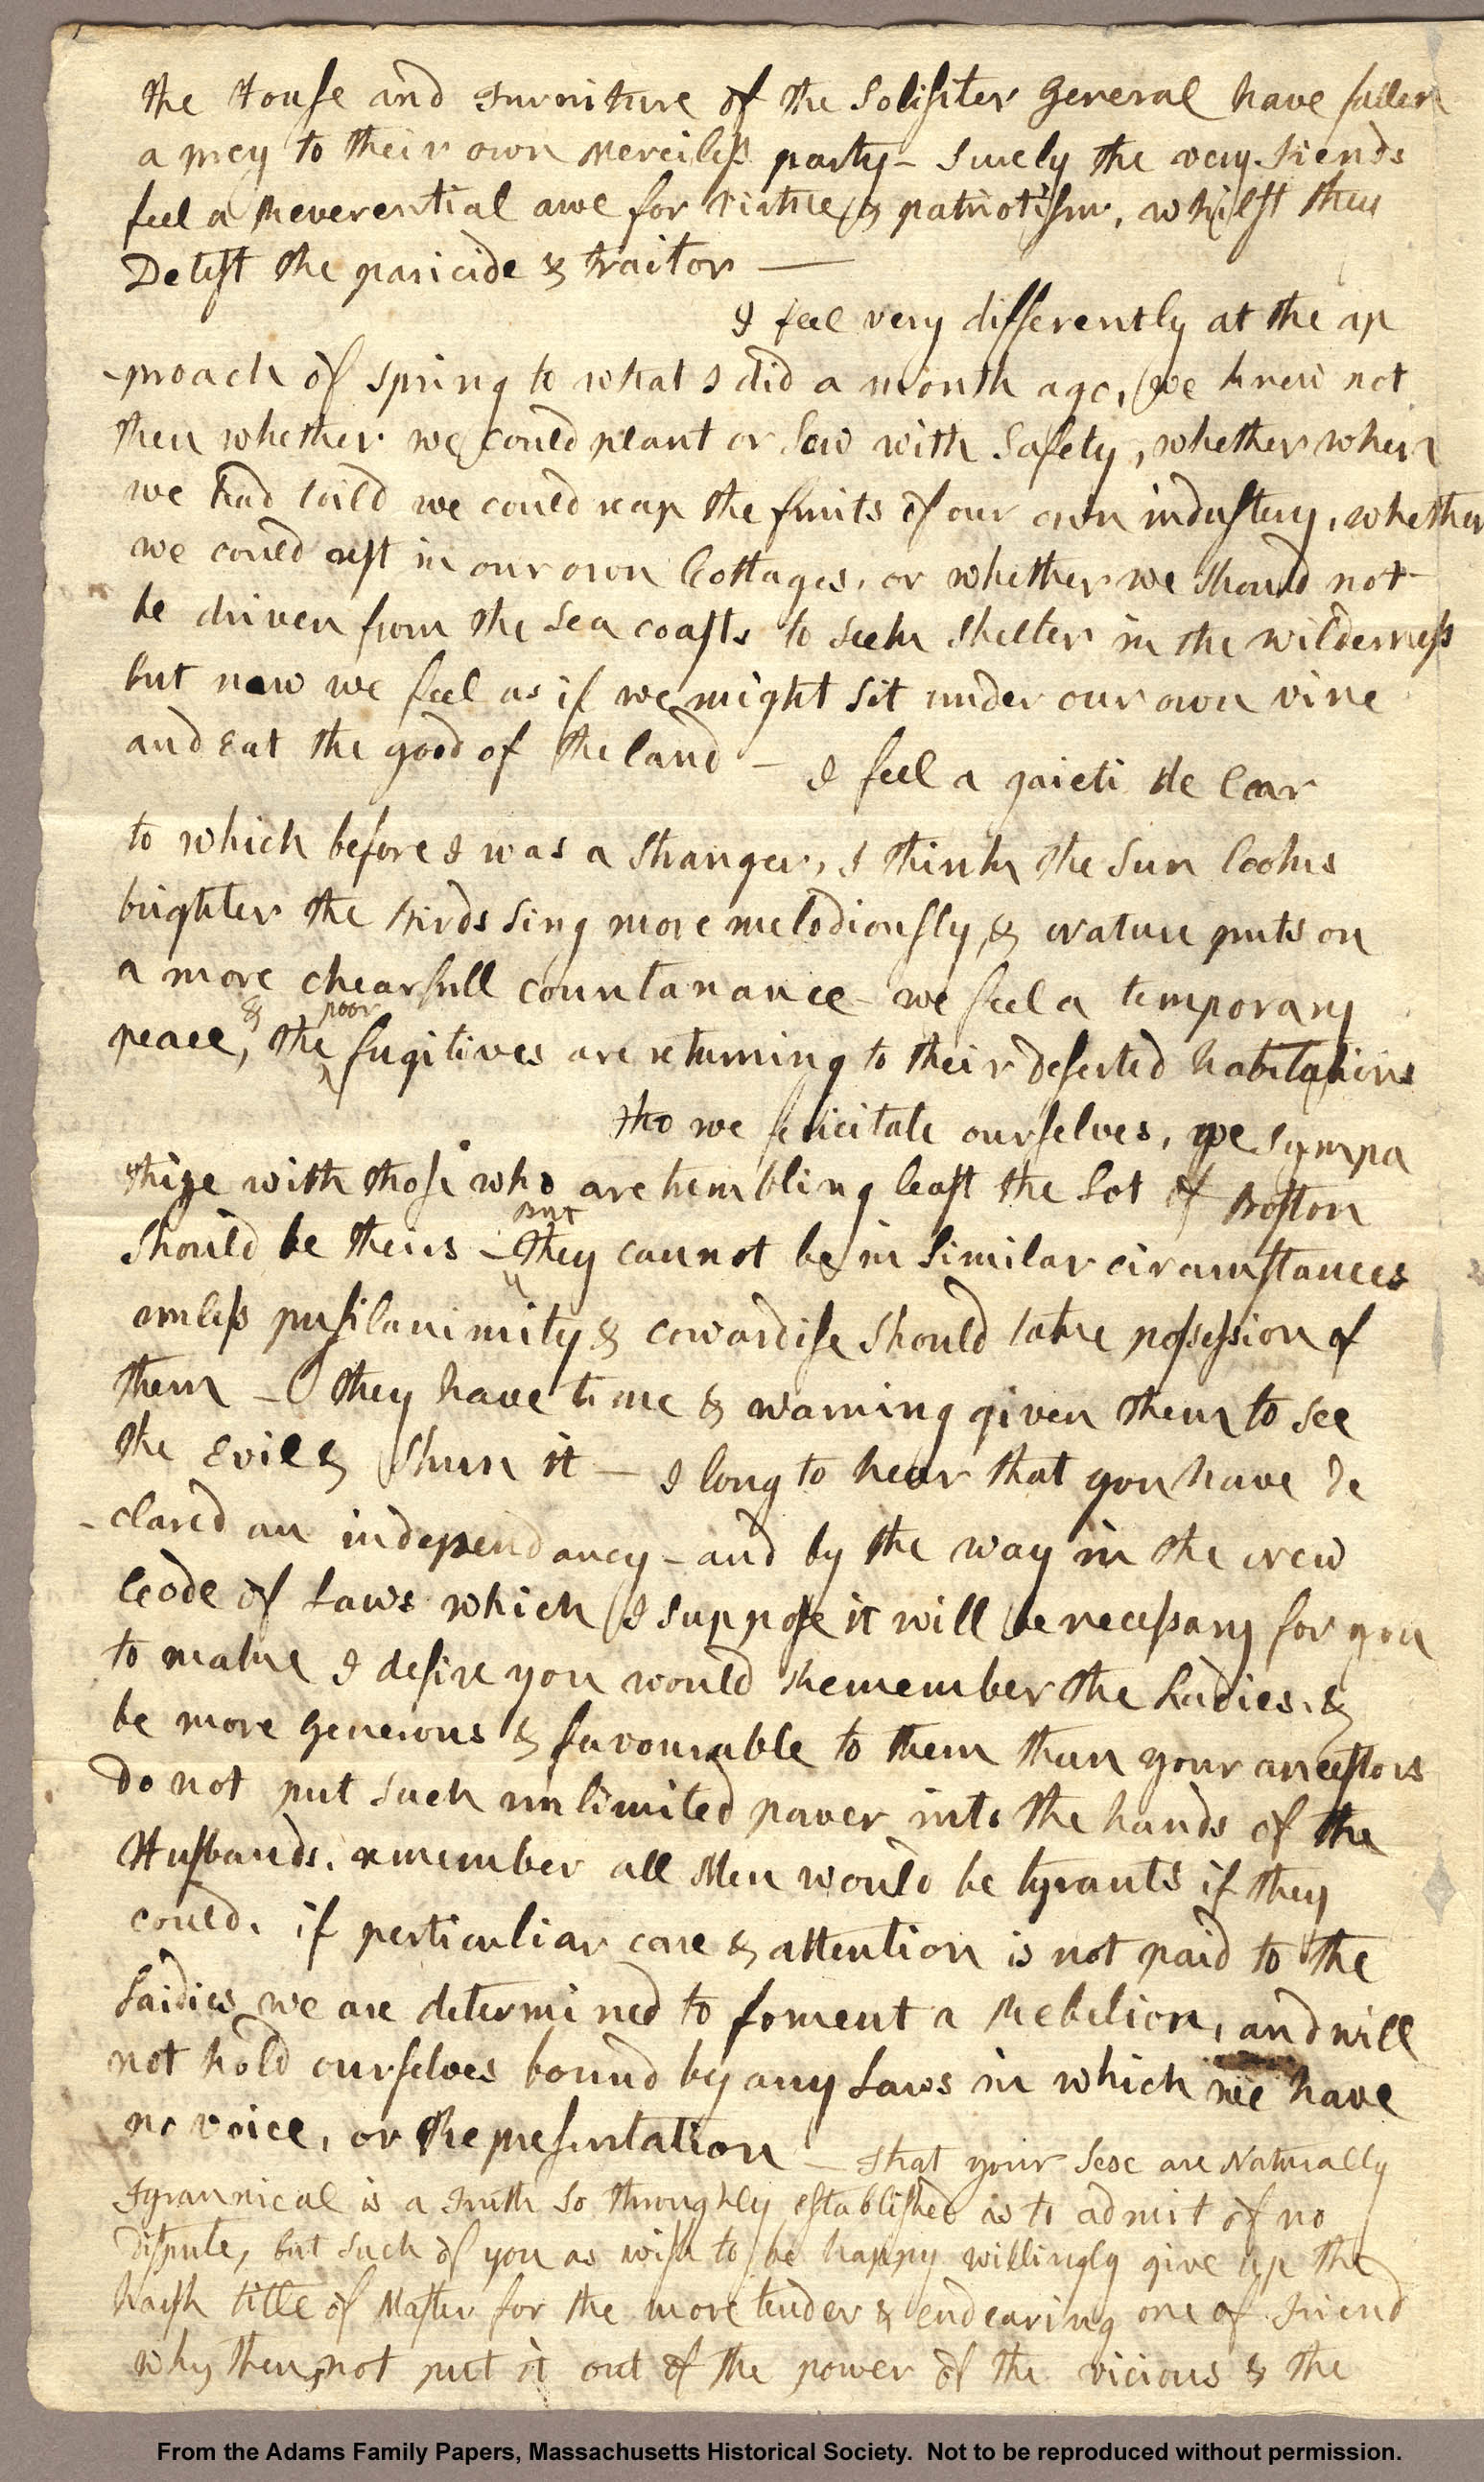 the House and Furniture of the Solisiter General have fallen
a prey to their own merciless party - Surely the very Fiends
feel a Reverential awe for Virtue & patriotism, whilst they
Detest the paricide & traitor —
I feel very differently at the ap
-proach of spring to what I did a month ago, we knew not
then whether we could plant or sow with safety, whether when
we had toild we could reap the fruits of our own industery, whether
we could rest in our own Cottages, or whether we should not
be driven from the sea coasts to seek shelter in the wilderness
but now we feel as if we might sit under our own vine
and eat the good of the land - I feel a gaieti de Coar
to which before I was a stranger, I think the Sun looks
brighter the Birds sing more melodiously, & Nature puts on
a more chearfull countanance - we feel a temporary
peace, & the poor fugitives are returning to their deserted habitations
tho we felicitate ourselves, we sympa
thize with those who are trembling least the Lot of Boston
should be theirs - But they cannot be in similar circumstances
unless pusilanimity & cowardise should take possession of
them - they have time & warning given them to see
the Evil & shun it — I long to hear that you have de
-clared an independancy - and by the way in the new
Code of Laws which I suppose it will be necessary for you
to make I desire you would Remember the Ladies, &
be more generous & favourable to them than your ancestors
do not put such unlimited power into the hands of the
Husbands. remember all Men would be tyrants if they
could. if perticuliar care & attention is not paid to the
Laidies we are determined to foment a Rebelion, and will
not hold ourselves bound by any Laws in which we have
no voice, or Representation — That your Sex are Naturally
Tyrannical is a Truth so thoroughly established as to admit of no
dispute, but such of you as wish to be happy willingly give up the
harsh title of Master for the more tender & endearing one of Friend
why then, not put it out of the power of the vicious & the
From the Adams Family Papers, Massachusetts Historical Society.  Not to be reproduced without permission.